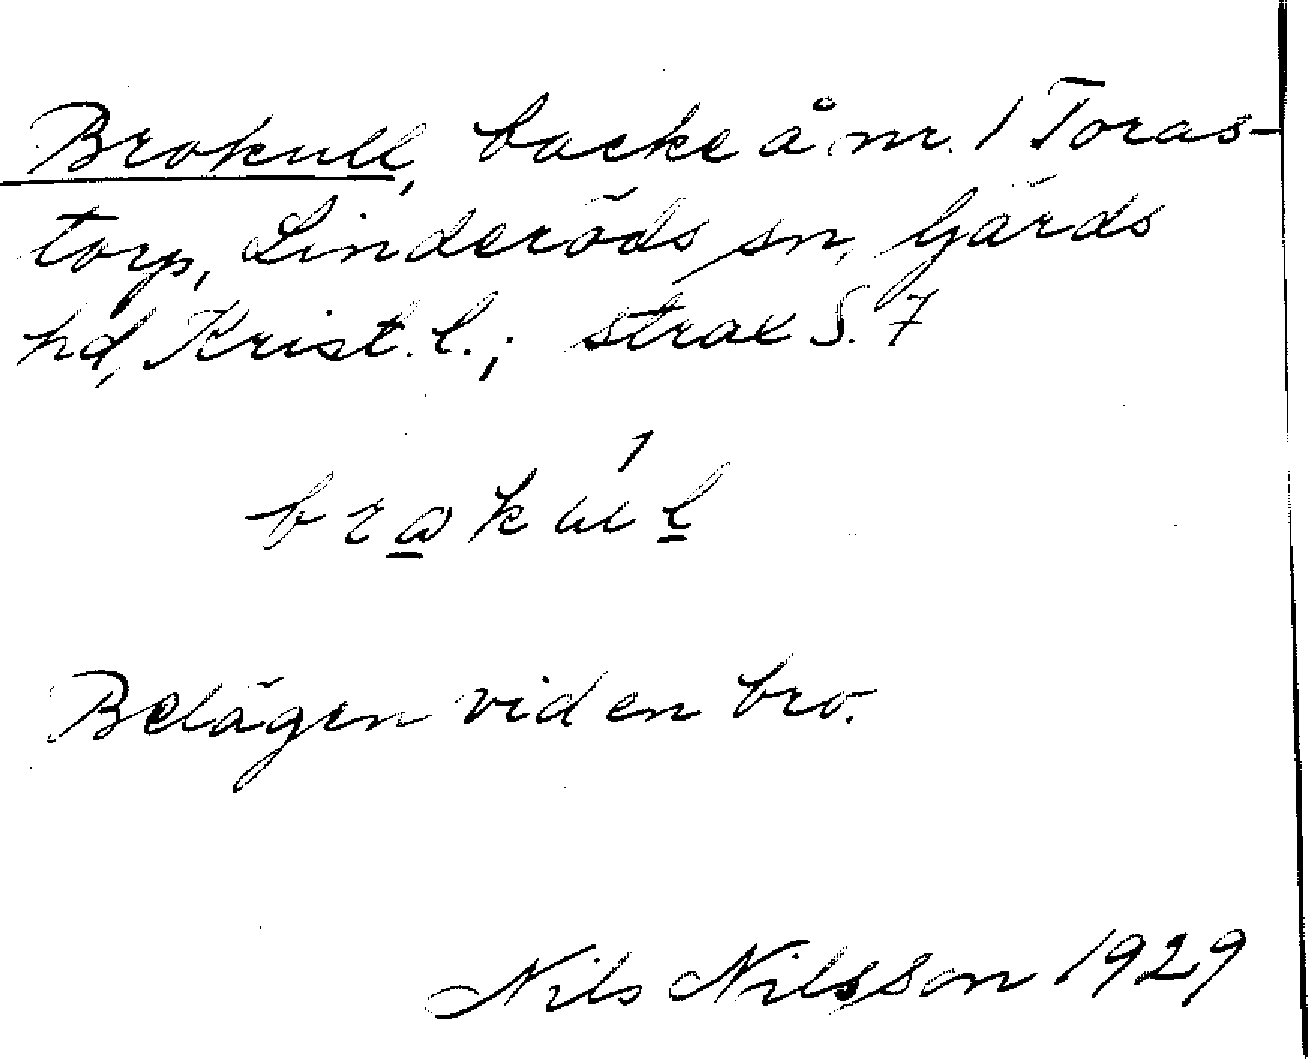 Brokull, backe å nr. 1 Toras-
torp, Linderöds sn, Gärds
hd, Krist. l.; strax S. 7
Belägen vid en bro.
Nils Nilsson 1929